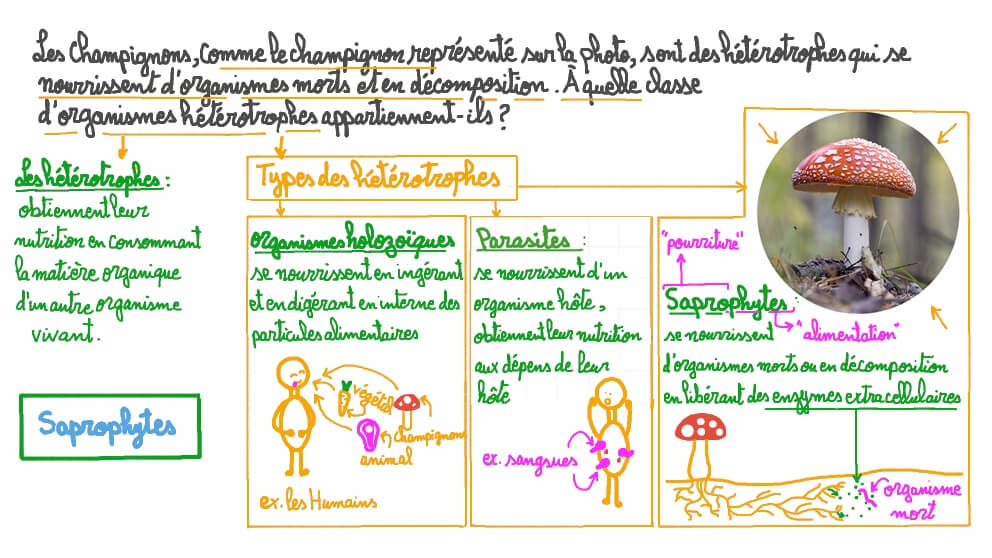 Les Champignons, comme le champignon représenté sur la photo, sont des hétérotrophes qui se
nourrissent d'organismes morts et en décomposition. À quelle classe
d'organismes hétérotrophes appartiennent-ils ?
Les hétérotrophes :
obtiennent leur
nutrition en consommant
la matière organique
d'un autre organisme
vivant.
Saprophytes
Types des hétérotrophes
organismes holozoïques
se nourrissent en ingérant
et en digérant en interne des
particules alimentaires
végétal
champignon
animal
ex. les Humains
Parasites :
se nourrissent d'un
organisme hôte,
obtiennent leur nutrition
aux dépens de leur
hôte
ex. sangsues
"pourriture"
Saprophytes :
"alimentation"
se nourrissent
d'organismes morts ou en décomposition
en libérant des enzymes extracellulaires
organisme
mort